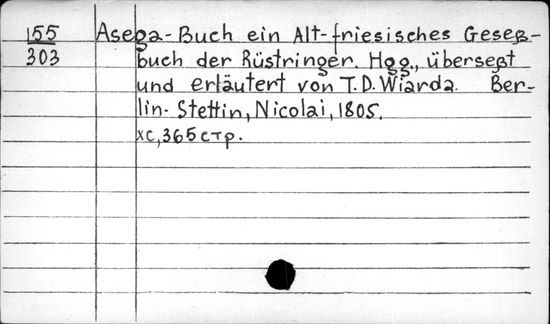 155 Asega-Buch ein Alt-friesisches Geseß-
303 buch der Rüstringer. Hgg., überseßt
und erläutert von T.D. Wiarda. Ber-
lin-Stettin, Nicolai, 1805.
xc, 365 стр.